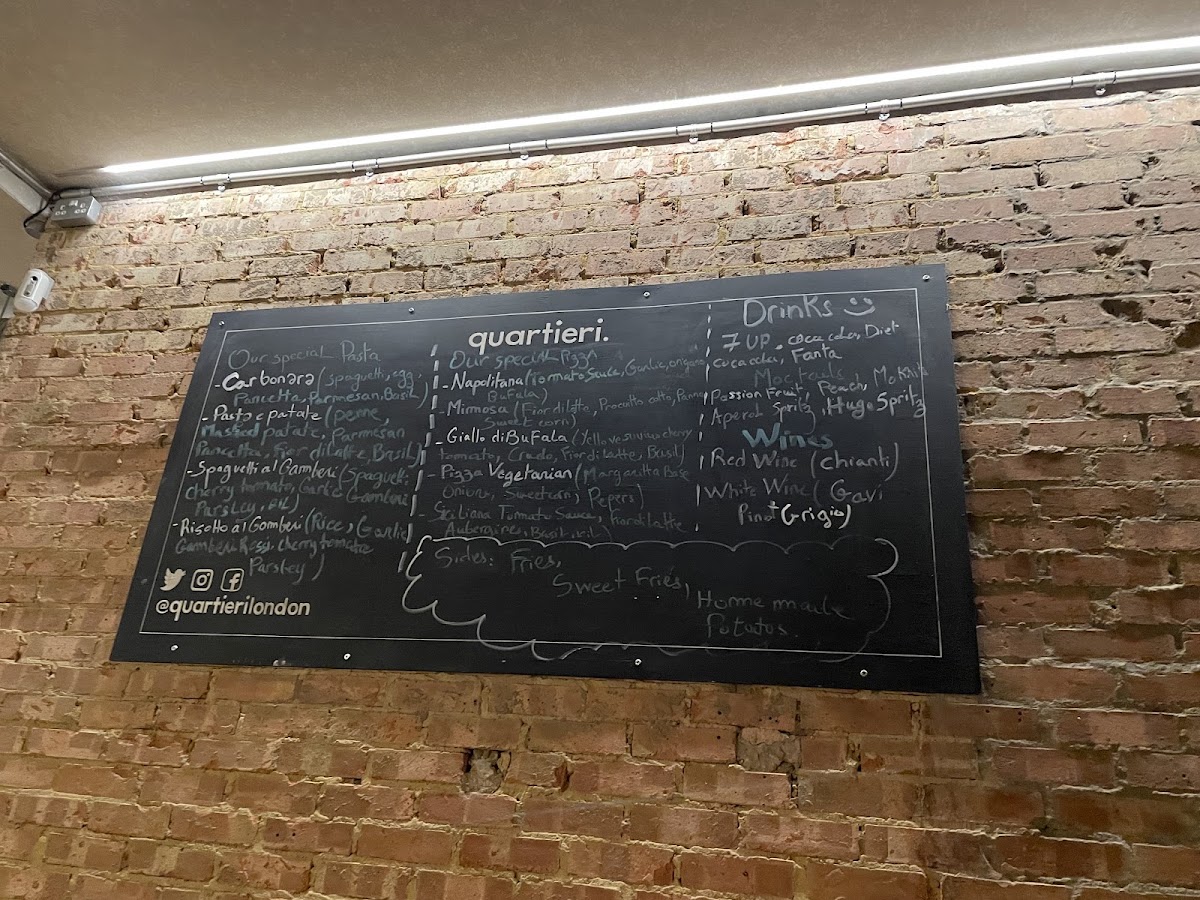 quartieri.
Our special Pasta
- Carbonara (spaghetti, egg,
Pancetta, Parmesan, Basil)
- Pasta e patate (penne,
Mashed patate, Parmesan
Pancetta, Fior di latte, Basil)
- Spaguetti al Gamberi (Spaguetti
cherry tomato, Garlic, Gamberi
Parsley, oil)
- Risotto al Gamberi (Rice, Garlic
Gamberi Rossi, cherry tomatoe
Parsley)
@quartierilondon
Our special Pizza
- Napolitana (Tomato Sauce, Garlic, origano
Bufala)
- Mimosa (Fior di latte, Procutto cotto, Panna
Sweet corn)
- Giallo di Bufala (Yellow cherry
tomato, Crudo, Fior di latte, Basil)
- Pizza Vegetarian (Margarita Base
Onions, Sweetcorn, Pepers)
- Siciliana Tomato Sauce, Fior di latte
Aubergines, Basil, oil)
Drinks
7 UP, coca cola, Diet
coca cola, Fanta
Moctails
Passion Fruit, Peach, Mokhito
Aperol Spritz, Hugo Spritz
Wines
Red Wine (Chianti)
White Wine (Gavi
Pinot Grigio)
Sides: Fries,
Sweet Fries,
Home made
Potatos.